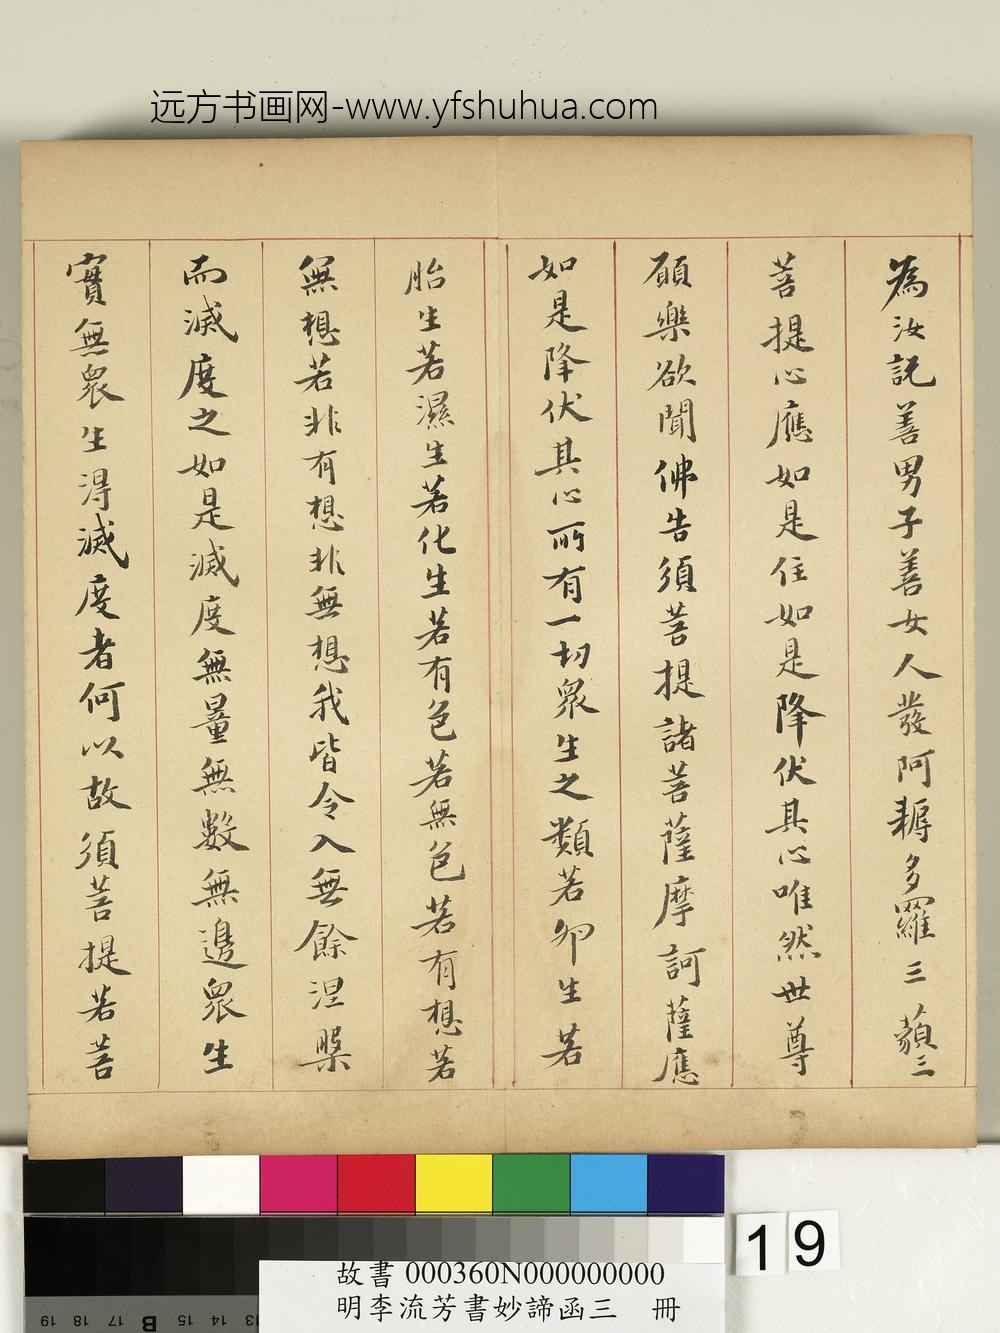 远方书画网-www.yfshuhua.com
為汝說善男子善女人發阿耨多羅三藐三
菩提心應如是住如是降伏其心唯然世尊
願樂欲聞佛告須菩提諸菩薩摩訶薩應
如是降伏其心所有一切眾生之類若卵生若
胎生若濕生若化生若有色若無色若有想若
無想若非有想非無想我皆令入無餘涅槃
而滅度之如是滅度無量無數無邊眾生
實無眾生得滅度者何以故須菩提若菩
19
故書 000360N000000000
明李流芳書妙諦函三 冊
19 18 17 B 15 14 13